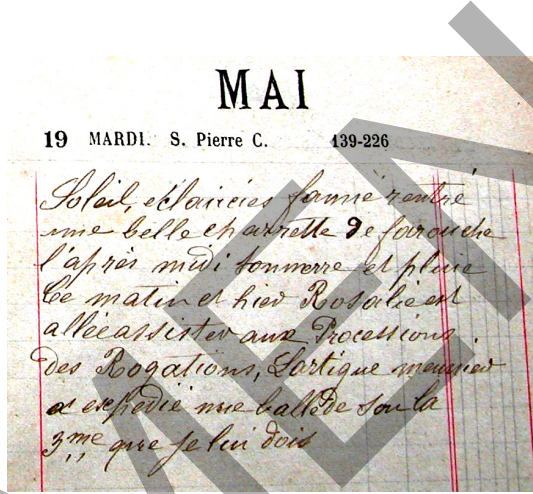 MAI
19 MARDI. S. Pierre C. 139-226
Soleil, éclaircies fanné rentré
une belle charrette de farouche
l'après midi tonnerre et pluie
Ce matin et hier Rosalie est
allée assister aux Processions
des Rogations, Lartigue meunier
a expédié une balle de son la
3me que je lui dois